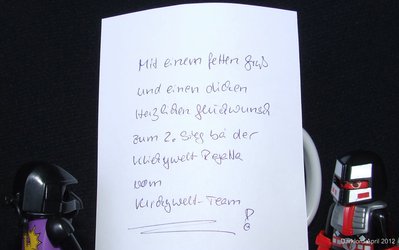 Mit einem fetten Gruß
und einen dicken
Herzlichen Glückwunsch
zum 2. Sieg bei der
Klickywelt-Regatta
vom
Klickywelt-Team
Darklord April 2012